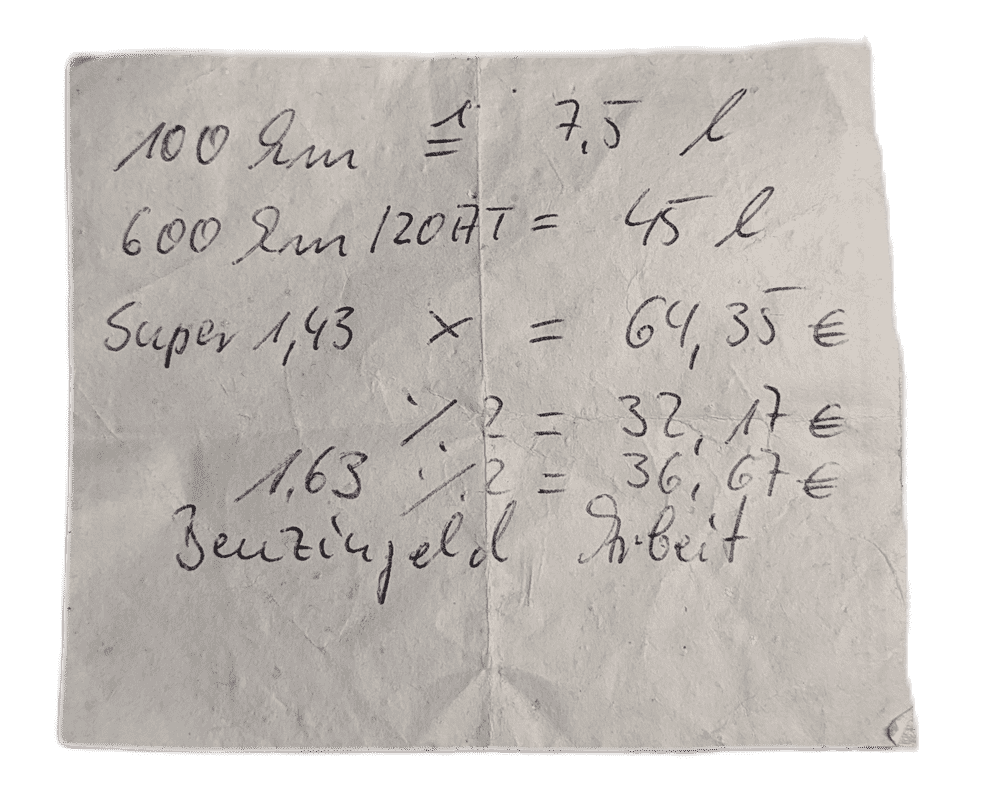 100 km ≙ 7,5 l
600 km /20AT = 45 l
Super 1,43 x = 64,35 €
./. 2 = 32,17 €
1,63 ./. 2 = 36,67 €
Benzingeld Arbeit